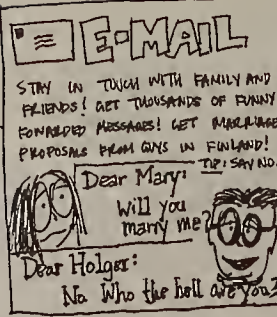 E-MAIL
STAY IN TOUCH WITH FAMILY AND
FRIENDS! GET THOUSANDS OF FUNNY
FORWARDED MESSAGES! GET MARRIAGE
PROPOSALS FROM GUYS IN FINLAND!
TIP: SAY NO.
Dear Mary:
Will you
marry me?
Dear Holger:
No. Who the hell are you?